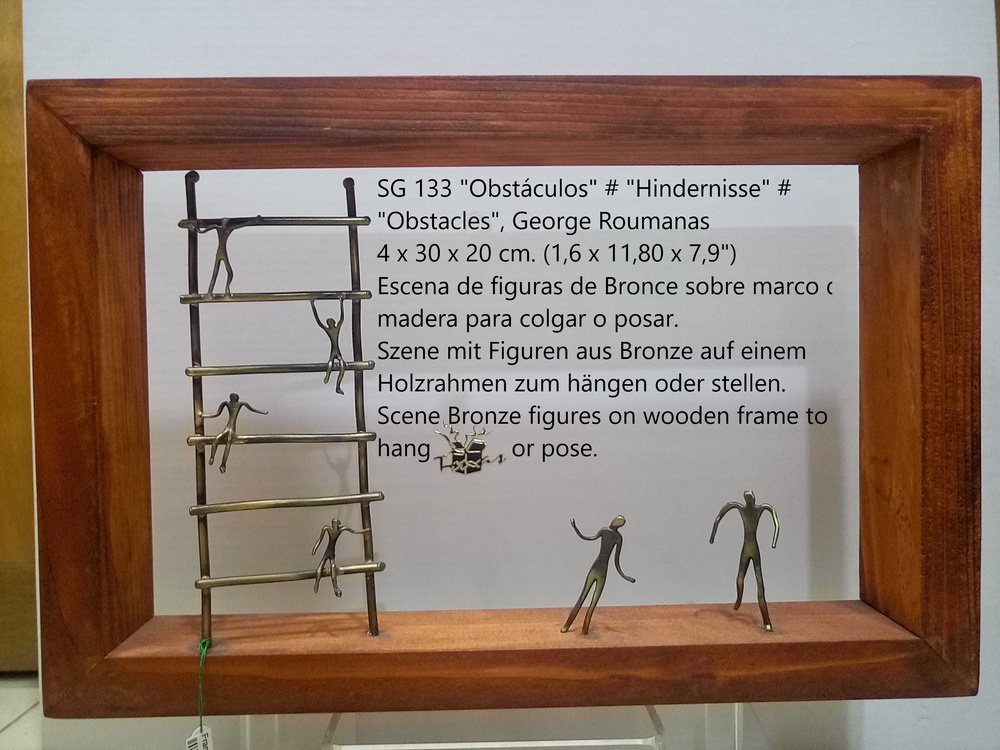 SG 133 "Obstáculos" # "Hindernisse" #
"Obstacles", George Roumanas
4 x 30 x 20 cm. (1,6 x 11,80 x 7,9")
Escena de figuras de Bronce sobre marco
madera para colgar o posar.
Szene mit Figuren aus Bronze auf einem
Holzrahmen zum hängen oder stellen.
Scene Bronze figures on wooden frame to
hang or pose.